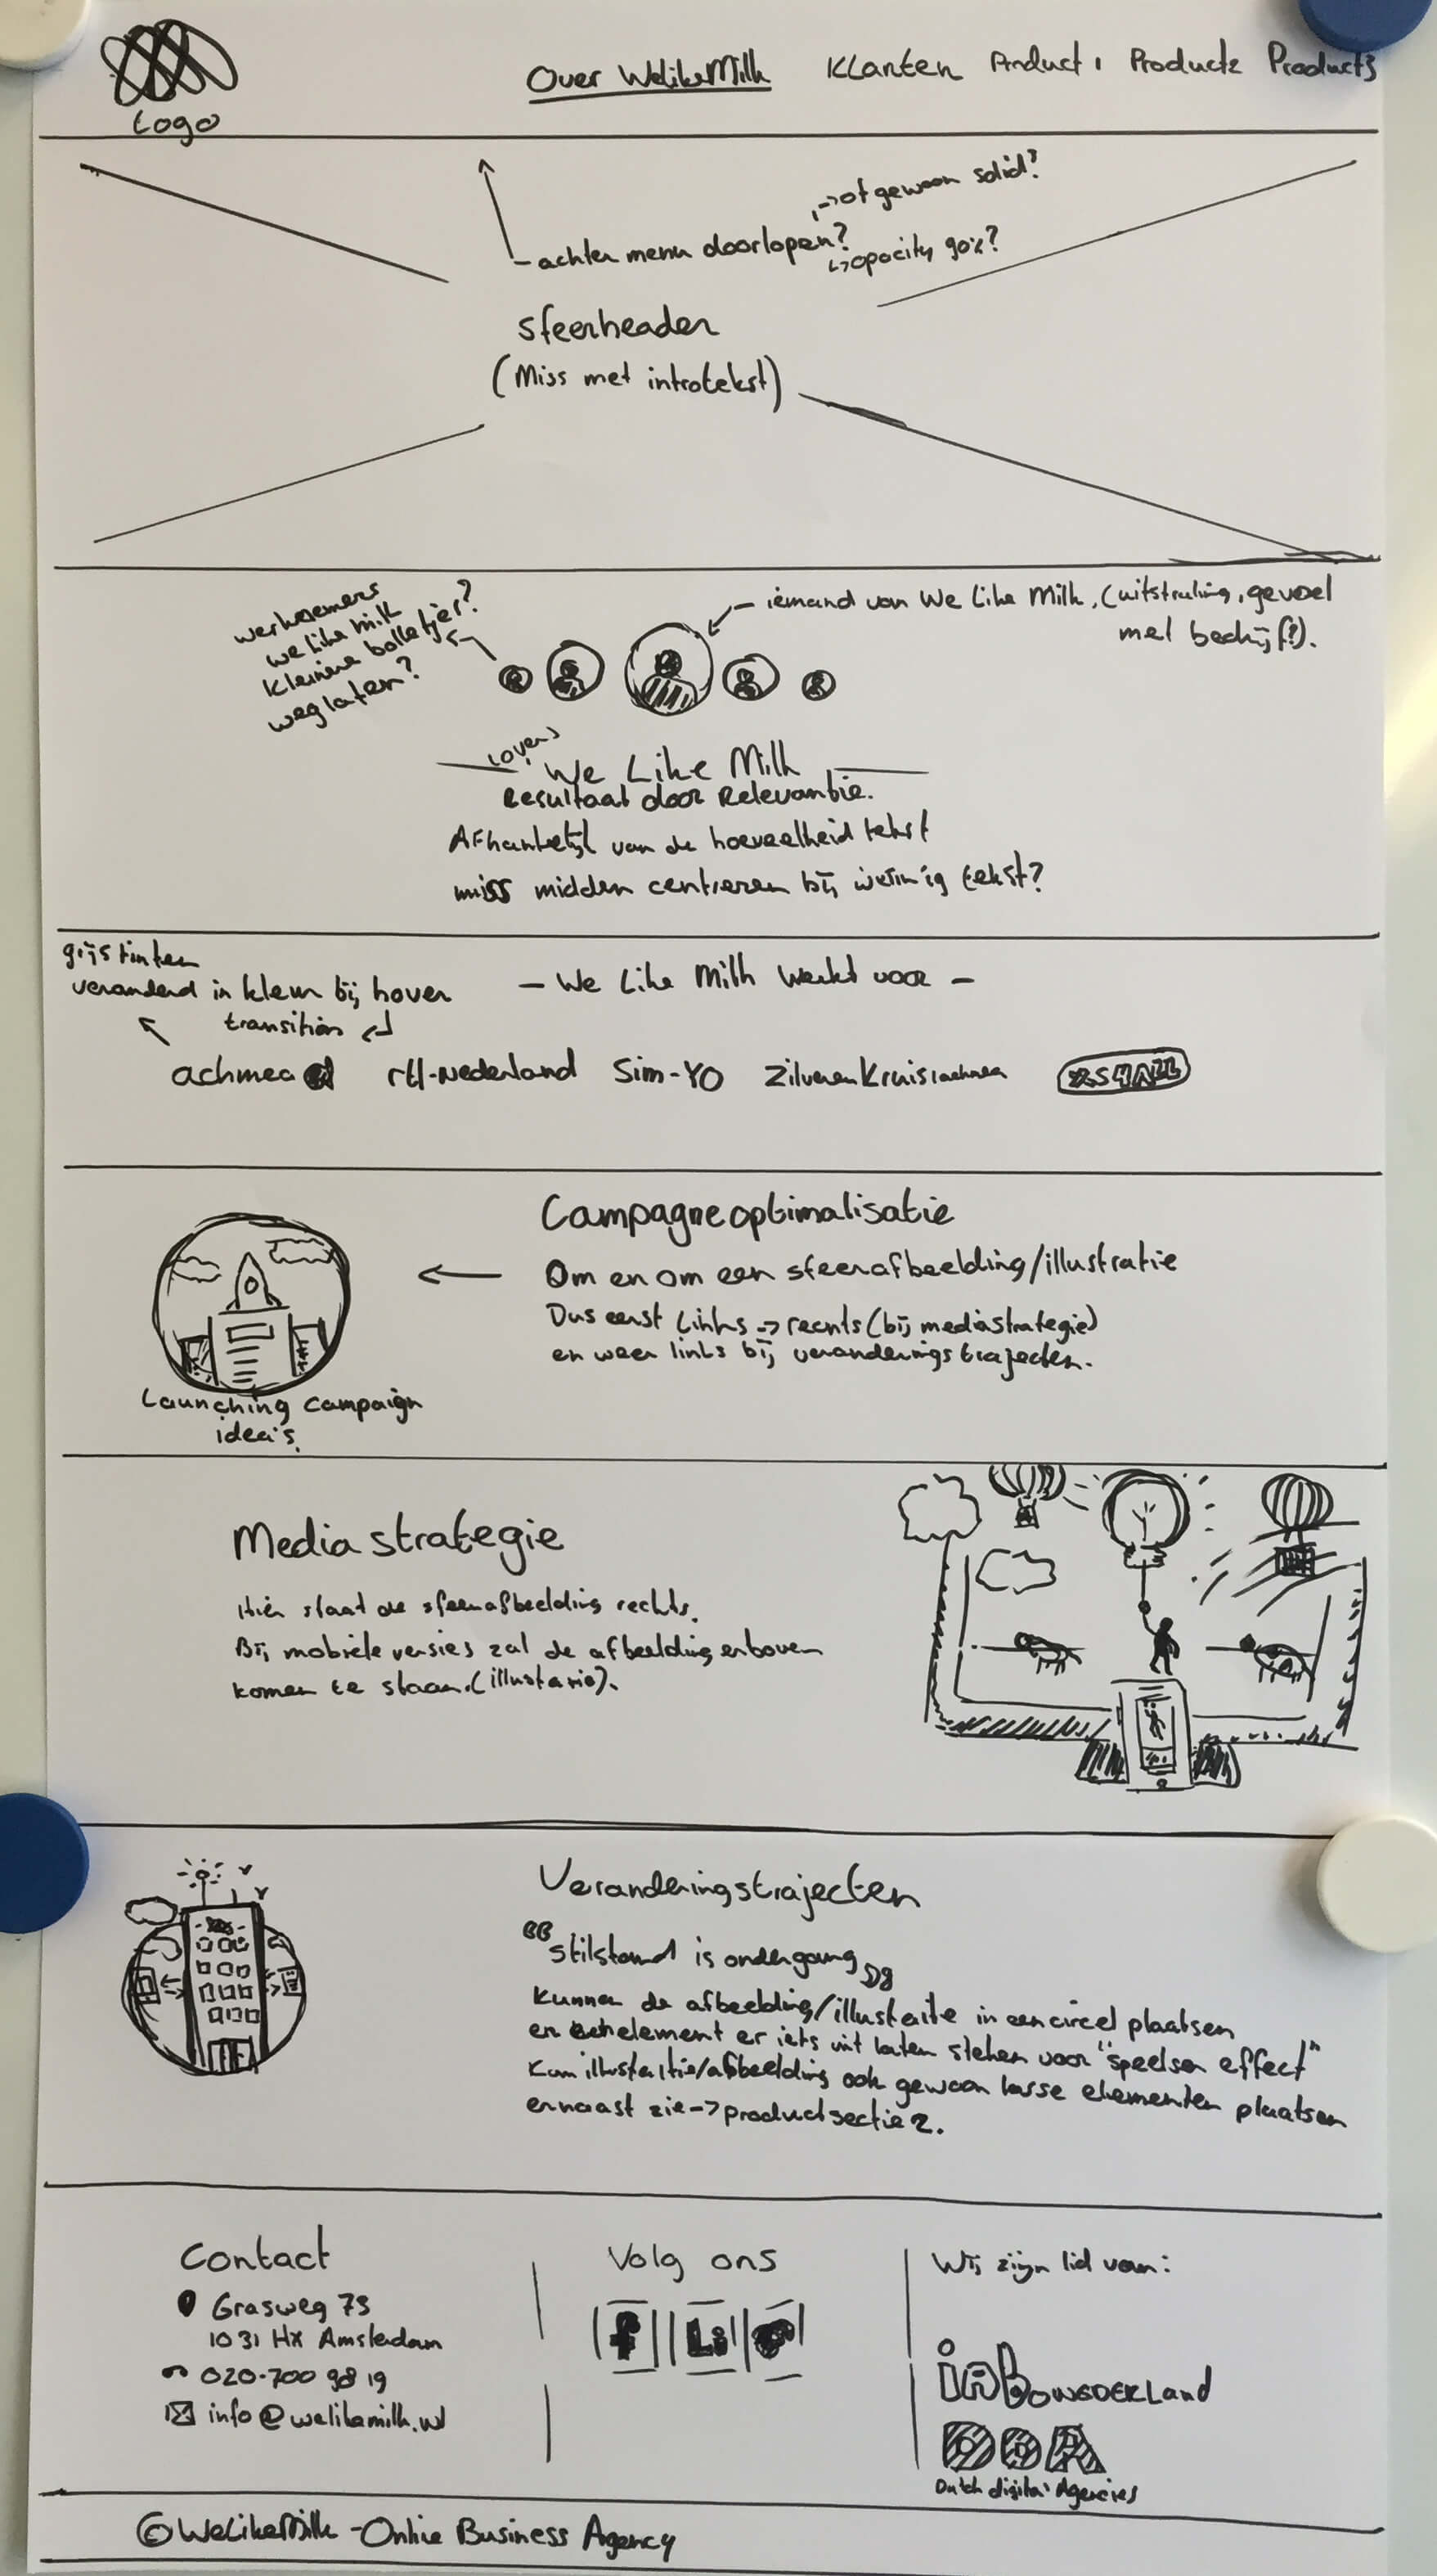 Logo
Over WelikeMilk Klanten Product 1 Product 2 Product 3
of gewoon solid?
achter menu doorlopen?
opacity 90%?
sfeerheader
(Miss met introtekst)
werknemers
we like milk
kleine bolletjes?
weglaten?
iemand van We Like Milk, (uitstraling, gevoel
met bedrijf?).
We Like Milk
Resultaat door Relevantie.
Afhankelijk van de hoeveelheid tekst
miss midden centreren bij weinig tekst?
grijstinten
veranderd in kleur bij hover
transition
- We Like Milk werkt voor -
achmea rtl-Nederland Sim-YO Zilveren Kruis achmea XS4ALL
Campagneoptimalisatie
Om en om een sfeerafbeelding/illustratie
Dus eerst Links -> rechts (bij mediastrategie)
en weer links bij veranderingstrajecten.
Launching campaign
idea's.
Mediastrategie
Hier staat de sfeerafbeelding rechts.
Bij mobiele versies zal de afbeelding erboven
komen te staan. (illustarie).
Veranderingstrajecten
"stilstand is ondergang"
Kunnen de afbeelding/illustaite in een circel plaatsen
en element er iets uit laten steken voor "speelser effect"
Kan illustaltie/afbeelding ook gewoon losse elementen plaatsen
ernaast zie -> productsectie 2.
Contact
Grasweg 73
1031 HX Amsterdam
020-700 98 19
info@welikemilk.nl
Volg ons
f Li
Wij zijn lid van:
iab. nederland
DDA
Dutch digital Agencies
© WeLikeMilk - Online Business Agency